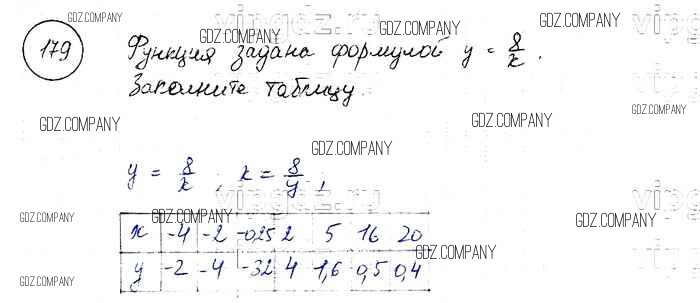 GDZ.COMPANY
vipgdz.ru
GDZ.COMPANY
179
Функция задана формулой y = 8/x.
GDZ.COMPANY
Заполните таблицу
GDZ.COMPANY
GDZ.COMPANY
GDZ.COMPANY
GDZ.COMPANY
y = 8/x ; x = 8/y ;
vipgdz.ru
GDZ.COMPANY
GDZ.COMPANY
GDZ.COMPANY
x -4 -2 -0,25 2 5 16 20
GDZ.COMPANY
y -2 -4 -32 4 1,6 0,5 0,4
GDZ.COMPANY